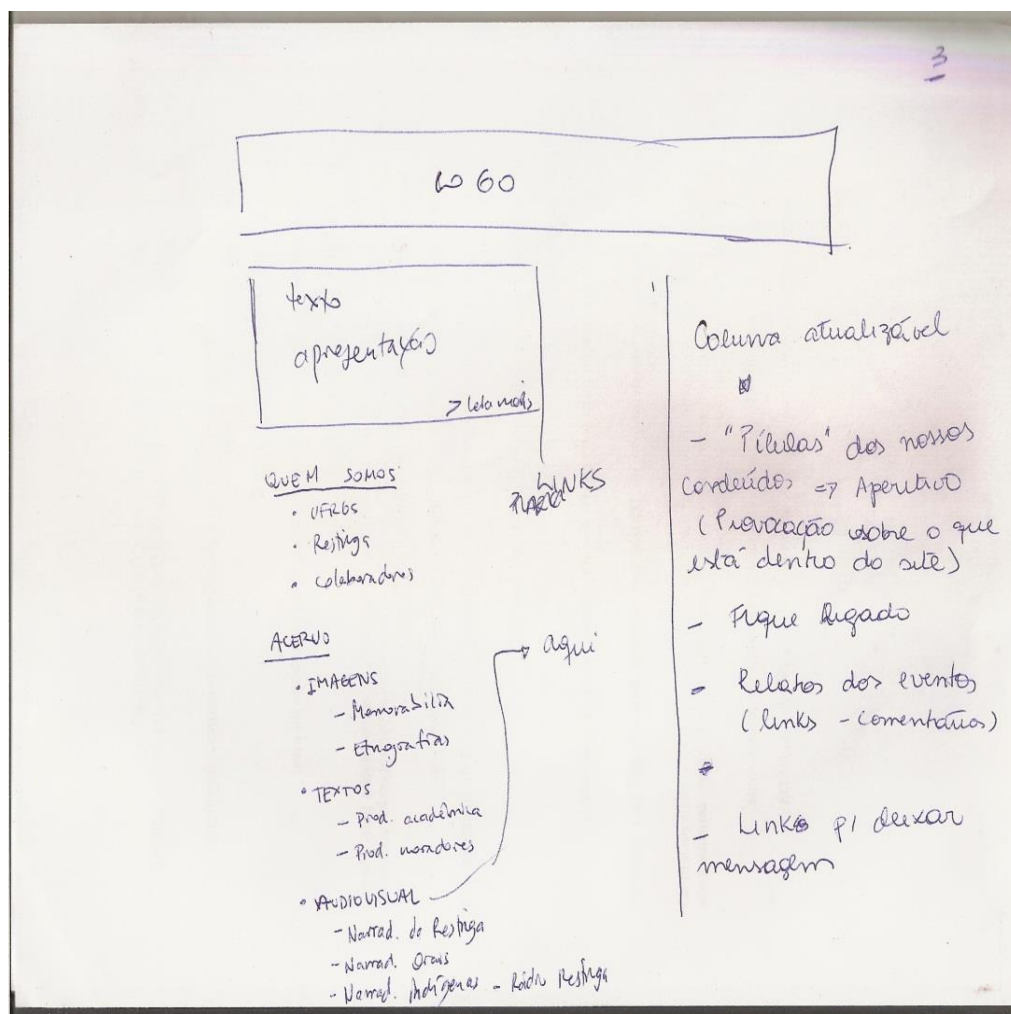 3
LOGO
texto
apresentação
> leia mais
QUEM SOMOS
• UFRGS
• Restinga
• Colaboradores
LINKS
ACERVO
• IMAGENS
- Memorabilia
- Etnografias
• TEXTOS
- Prod. acadêmica
- Prod. moradores
• AUDIOVISUAL
- Narrad. da Restinga
- Narrad. Orais
- Narrad. Indígenas - Rádio Restinga
aqui
Coluna atualizável
- "Pílulas" dos nossos
conteúdos => Aperitivo
(Provocação sobre o que
está dentro do site)
- Fique ligado
- Relatos dos eventos
(links - comentários)
-
- Links p/ deixar
mensagem